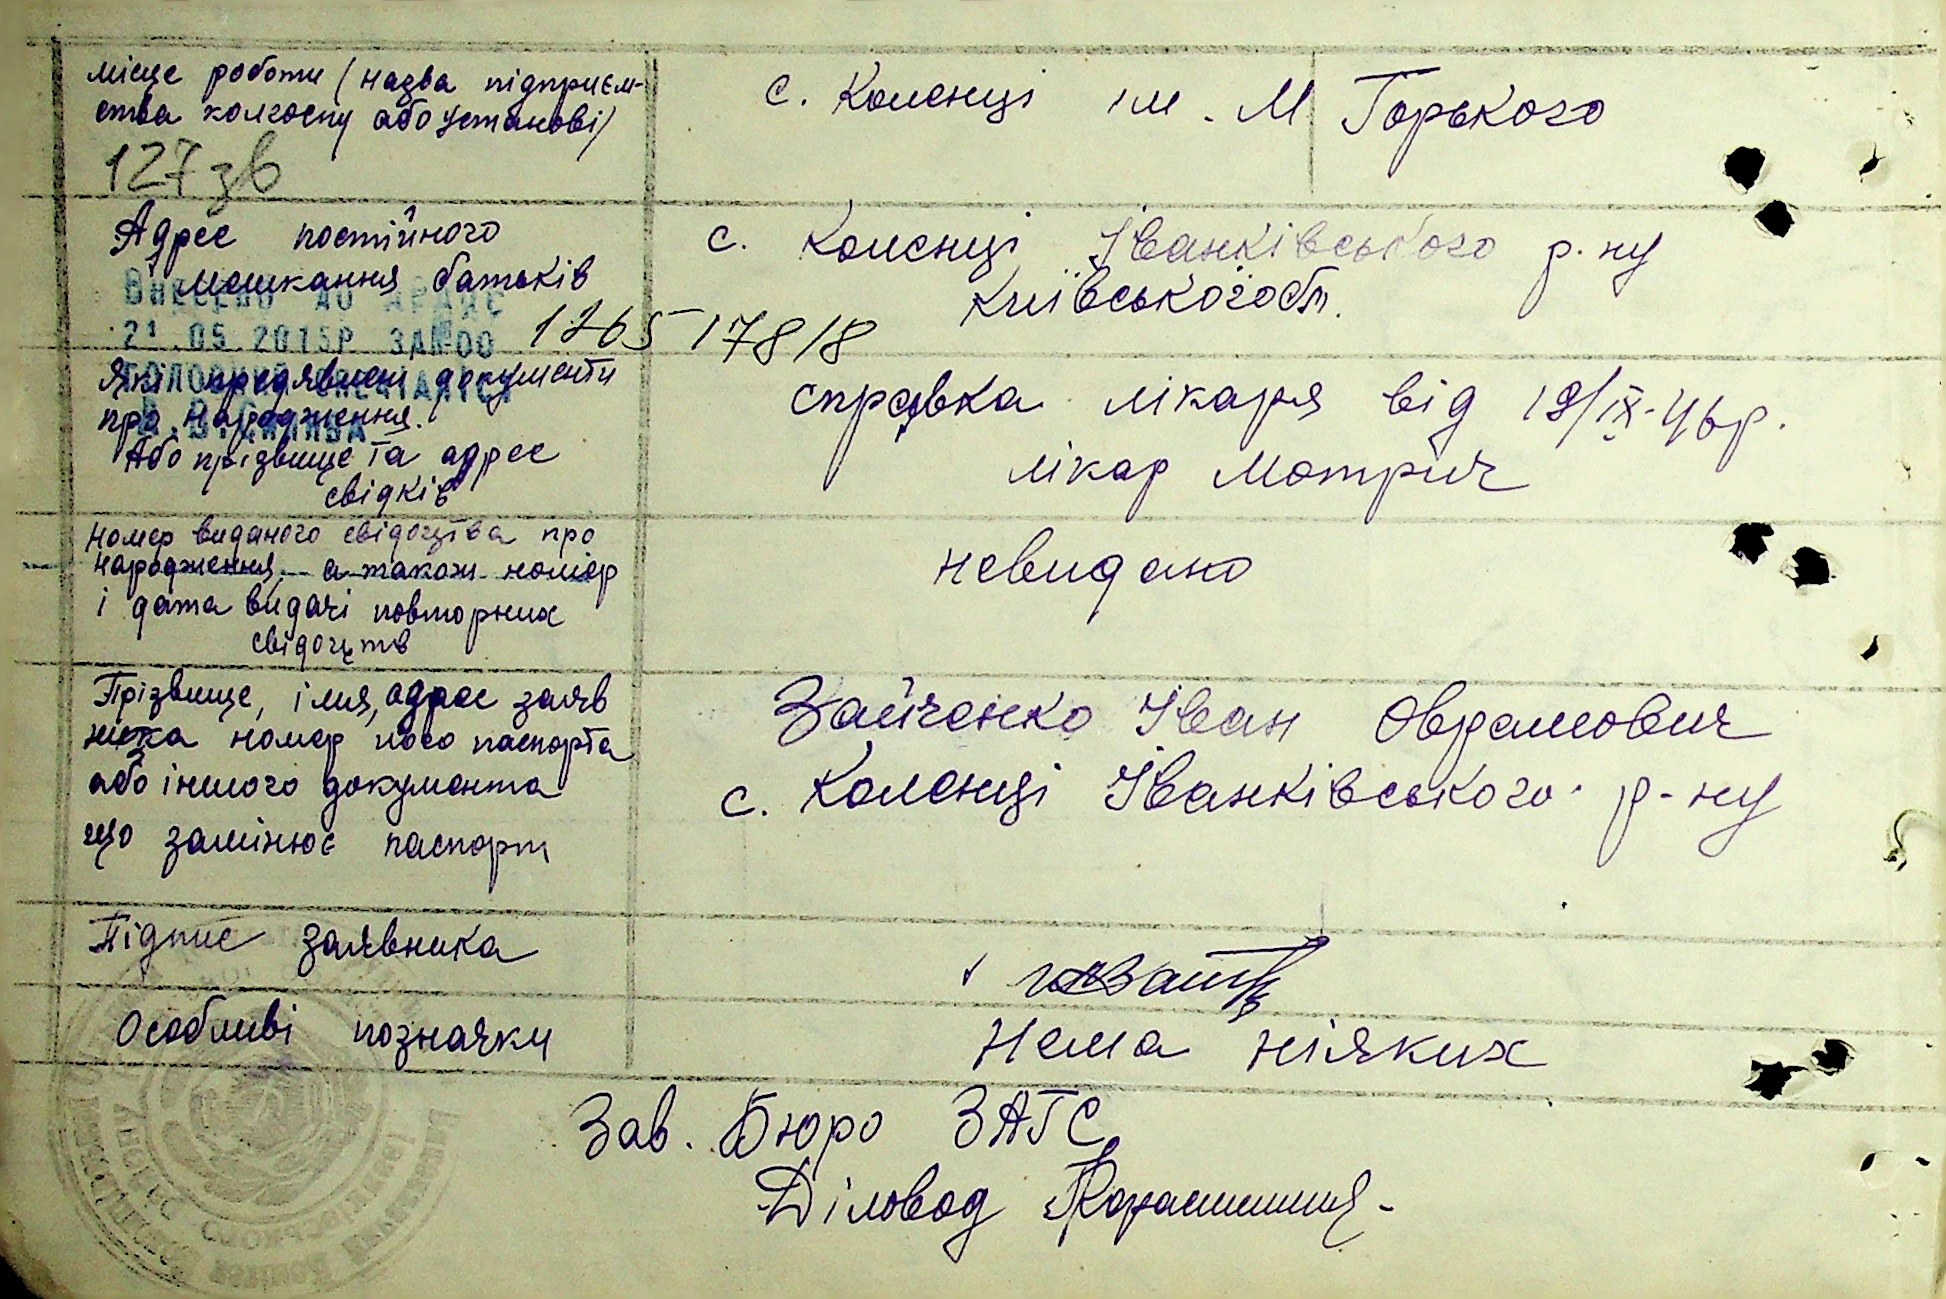 місце роботи (назва підприєм-
ства колгоспу або установі)
с. Коленці ім. М Горького
127 зв
Адрес постійного
мешкання батьків
с. Коленці Іванківського р.ну
Київського обл.
Внесено до ДРАЦС
21.05.2015р ЗА№00
1265 17818
Які предявлені документи
про народження.
Або прізвище та адрес
свідків
справка лікаря від 19/ІХ-46р.
лікар Мотрич
номер виданого свідоцтва про
народження, а також номер
і дата видачі повторних
свідоцтв
невидано
Прізвище, імя, адрес заяв
ника номер його паспорта
або іншого документа
що замінює паспорт
Зайченко Іван Оврамович
с. Коленці Іванківського р-ну
Підпис заявника
Особливі позначки
Нема ніяких
Зав. Бюро ЗАГС
Діловод